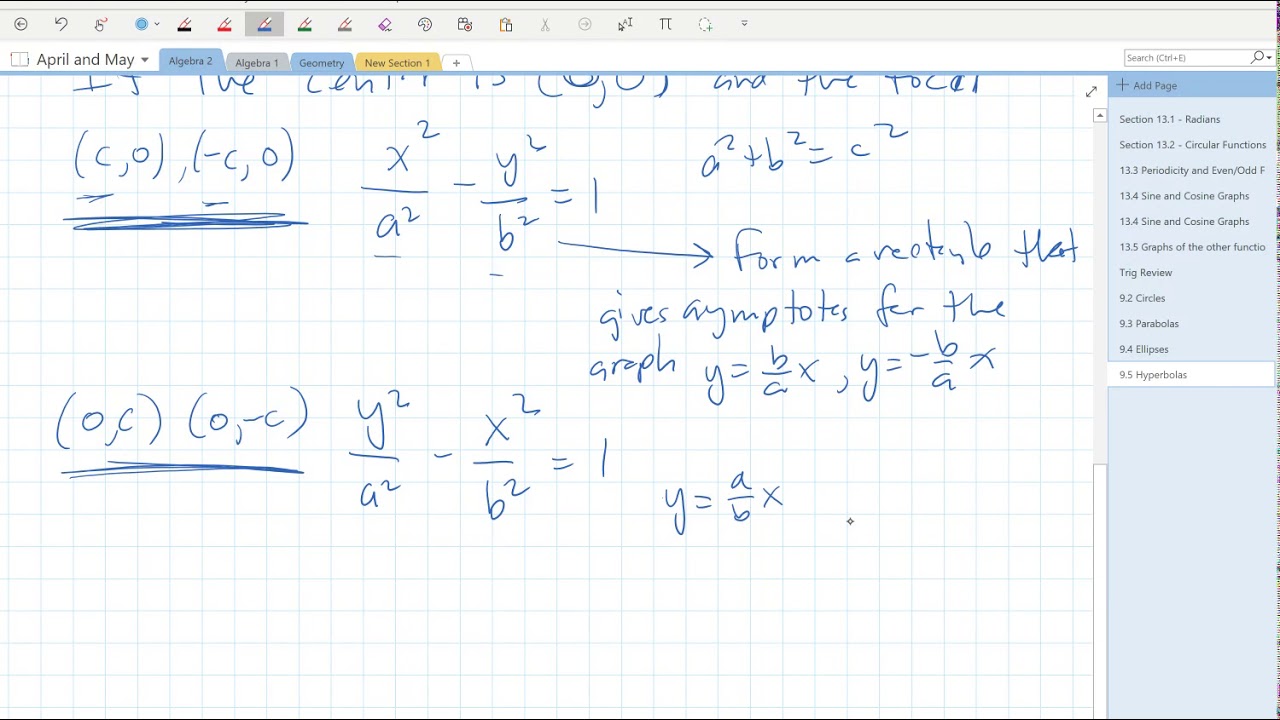 April and May
Algebra 2
Algebra 1
Geometry
New Section 1
+
Search (Ctrl+E)
If the center is (0,0) and the focal
(c,0), (-c,0) x²/a² - y²/b² = 1 a²+b²=c²
→ Form a rectangle that
gives asymptotes for the
graph y = b/a x, y = -b/a x
(0,c) (0,-c) y²/a² - x²/b² = 1
y = a/b x
+ Add Page
Section 13.1 - Radians
Section 13.2 - Circular Functions
13.3 Periodicity and Even/Odd F
13.4 Sine and Cosine Graphs
13.4 Sine and Cosine Graphs
13.5 Graphs of the other functio
Trig Review
9.2 Circles
9.3 Parabolas
9.4 Ellipses
9.5 Hyperbolas